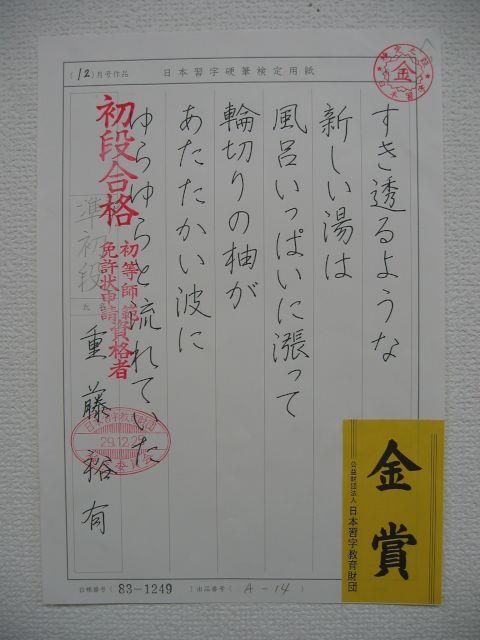 (12)月号作品
日本習字硬筆検定用紙
金
すき透るような
新しい湯は
風呂いっぱいに漲って
輪切りの柚が
あたたかい波に
ゆらゆらと流れていた
初段合格
初等師範資格者
免許状申請
準初段
氏名
重藤裕有
29.12.25
金賞
公益財団法人 日本習字教育財団
目標番号(83-1249)出品番号(A-14)